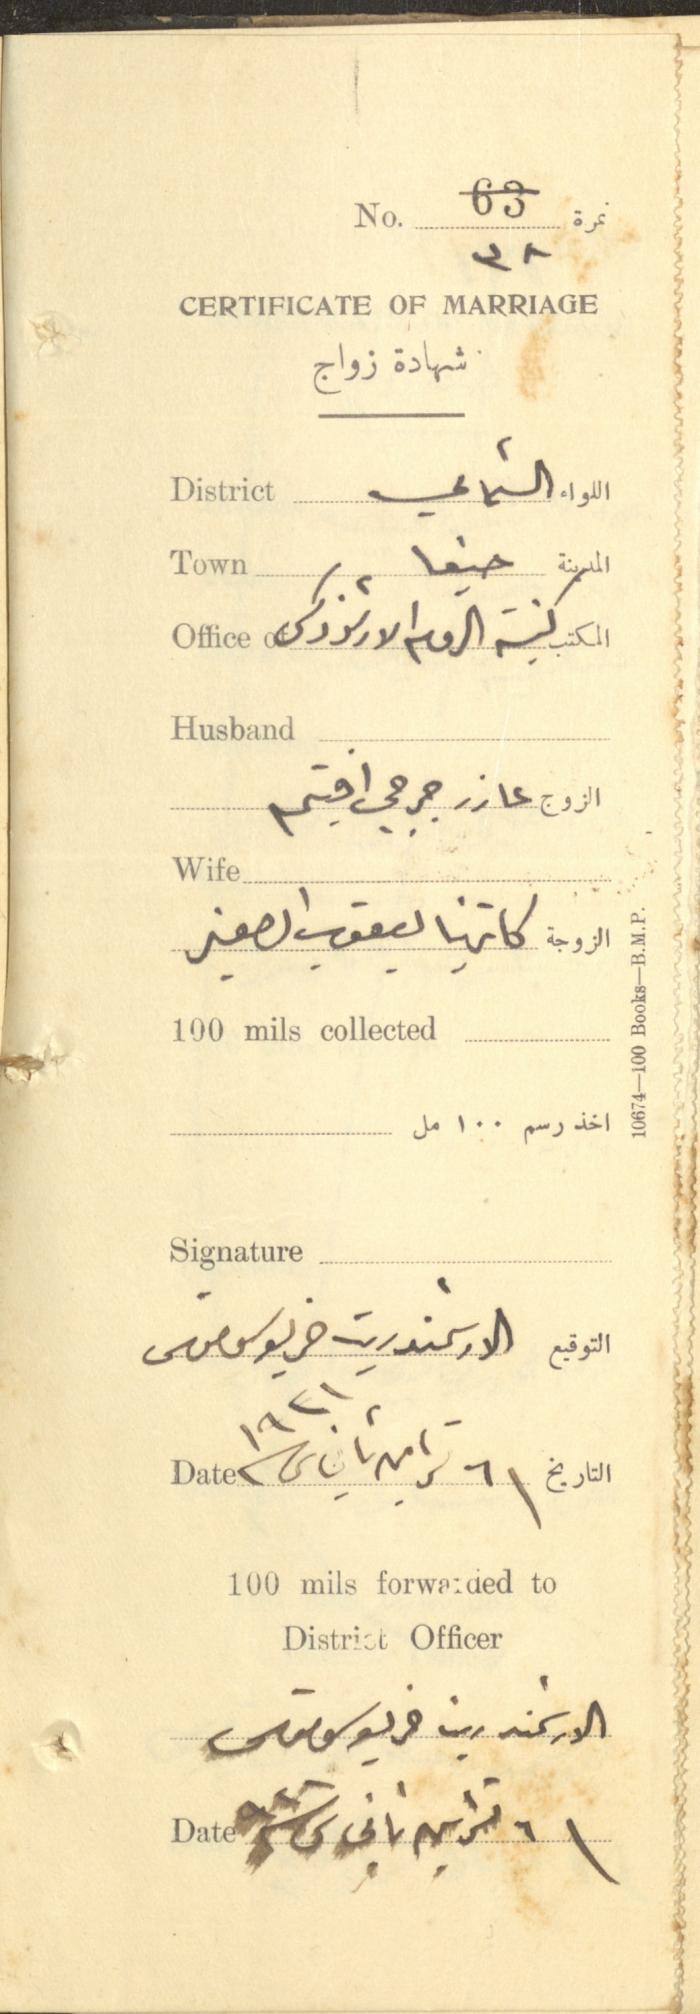 No. 63 نمرة
٣٨
CERTIFICATE OF MARRIAGE
شهادة زواج
District الشمالي اللواء
Town حيفا المدينة
Office of كنيسة الروم الارثوذكس المكتب
Husband
الزوج عازر جرجي
Wife
الزوجة كاترينا يعقوب الصغير
100 mils collected
اخذ رسم ١٠٠ مل
Signature
التوقيع الارشمندريت
Date التاريخ ١٦ تشرين ثاني
100 mils forwarded to
District Officer
الارشمندريت
Date ١٦ تشرين ثاني
10674—100 Books—B.M.P.